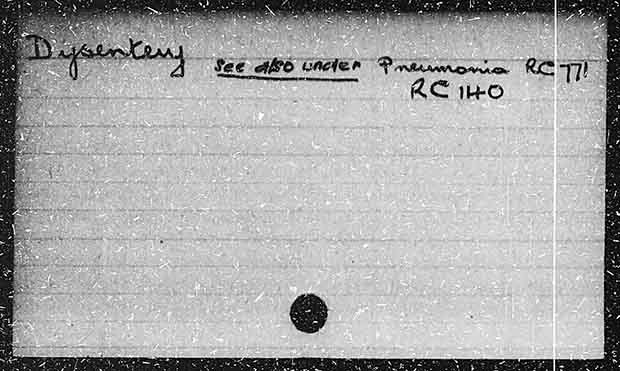 Dysentery see also under Pneumonia RC 771
RC 140